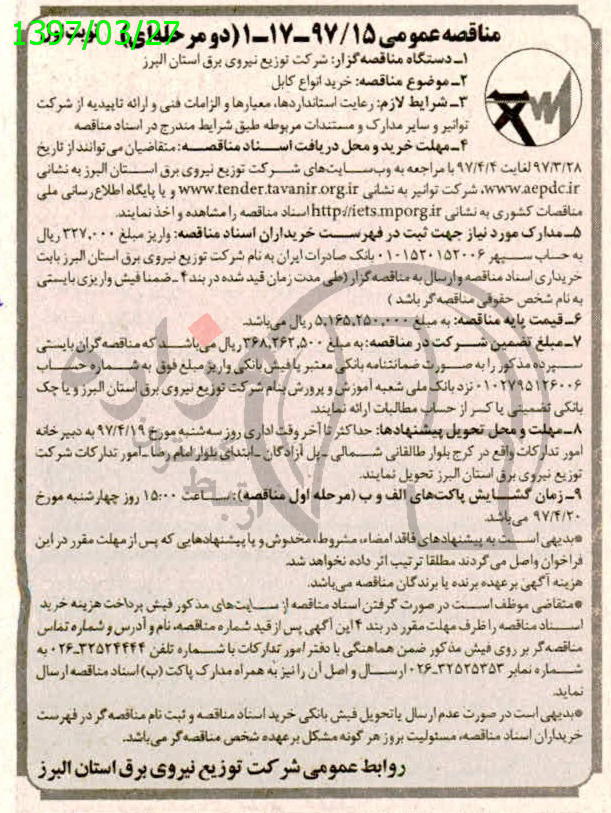 1397/03/27
مناقصه عمومی ۹۷/۱۵–۱۷–۱ (دو مرحله‌ای) نوبت اول
۱ـ دستگاه مناقصه‌گزار: شرکت توزیع نیروی برق استان البرز
۲ـ موضوع مناقصه: خرید انواع کابل
۳ـ شرایط لازم: رعایت استانداردها، معیارها و الزامات فنی و ارائه تاییدیه از شرکت
توانیر و سایر مدارک و مستندات مربوطه طبق شرایط مندرج در اسناد مناقصه
۴ـ مهلت خرید و محل دریافت اسناد مناقصه: متقاضیان می‌توانند از تاریخ
۹۷/۳/۲۸ لغایت ۹۷/۴/۴ با مراجعه به وب‌سایت‌های شرکت توزیع نیروی برق استان البرز به نشانی
www.aepdc.ir، شرکت توانیر به نشانی www.tender.tavanir.org.ir و یا پایگاه اطلاع‌رسانی ملی
مناقصات کشوری به نشانی http://iets.mporg.ir اسناد مناقصه را مشاهده و اخذ نمایند.
۵ـ مدارک مورد نیاز جهت ثبت در فهرست خریداران اسناد مناقصه: واریز مبلغ ۳۲۷,۰۰۰ ریال
به حساب سپهر ۰۱۰۱۵۲۰۱۵۲۰۰۶ بانک صادرات ایران به نام شرکت توزیع نیروی برق استان البرز بابت
خریداری اسناد مناقصه و ارسال به مناقصه‌گزار (طی مدت زمان قید شده در بند ۴ ـ ضمنا فیش واریزی بایستی
به نام شخص حقوقی مناقصه‌گر باشد)
۶ـ قیمت پایه مناقصه: به مبلغ ۵,۱۶۵,۲۵۰,۰۰۰ ریال می‌باشد.
۷ـ مبلغ تضمین شرکت در مناقصه: به مبلغ ۳۶۸,۲۶۲,۵۰۰ ریال می‌باشد که مناقصه‌گران بایستی
سپرده مذکور را به صورت ضمانتنامه بانکی معتبر یا فیش بانکی واریز مبلغ فوق به شماره حساب
۰۱۰۲۷۹۵۱۲۶۰۰۶ نزد بانک ملی شعبه آموزش و پرورش بنام شرکت توزیع نیروی برق استان البرز و یا چک
بانکی تضمینی یا کسر از حساب مطالبات ارائه نمایند.
۸ـ مهلت و محل تحویل پیشنهادها: حداکثر تا آخر وقت اداری روز سه‌شنبه مورخ ۹۷/۴/۱۹ به دبیرخانه
امور تدارکات واقع در کرج بلوار طالقانی شمالی ـ پل آزادگان ـ ابتدای بلوار امام رضا ـ امور تدارکات شرکت
توزیع نیروی برق استان البرز تحویل نمایند.
۹ـ زمان گشایش پاکت‌های الف و ب (مرحله اول مناقصه): ساعت ۱۵:۰۰ روز چهارشنبه مورخ
۹۷/۴/۲۰ می‌باشد.
*بدیهی است به پیشنهادهای فاقد امضاء، مشروط، مخدوش و یا پیشنهادهایی که پس از مهلت مقرر در این
فراخوان واصل می‌گردند مطلقا ترتیب اثر داده نخواهد شد.
هزینه آگهی بر عهده برنده یا برندگان مناقصه می‌باشد.
*متقاضی موظف است در صورت گرفتن اسناد مناقصه از سایت‌های مذکور فیش پرداخت هزینه خرید
اسناد مناقصه را ظرف مهلت مقرر در بند ۴ این آگهی پس از قید شماره مناقصه، نام و آدرس و شماره تماس
مناقصه‌گر بر روی فیش مذکور ضمن هماهنگی با دفتر امور تدارکات با شماره تلفن ۳۲۵۲۴۴۴۴-۰۲۶ به
شماره نمابر ۳۲۵۲۵۳۵۳-۰۲۶ ارسال و اصل آن را نیز به همراه مدارک پاکت (ب) اسناد مناقصه ارسال
نماید.
*بدیهی است در صورت عدم ارسال یا تحویل فیش بانکی خرید اسناد مناقصه و ثبت نام مناقصه‌گر در فهرست
خریداران اسناد مناقصه، مسئولیت بروز هر گونه مشکل بر عهده شخص مناقصه‌گر می‌باشد.
روابط عمومی شرکت توزیع نیروی برق استان البرز